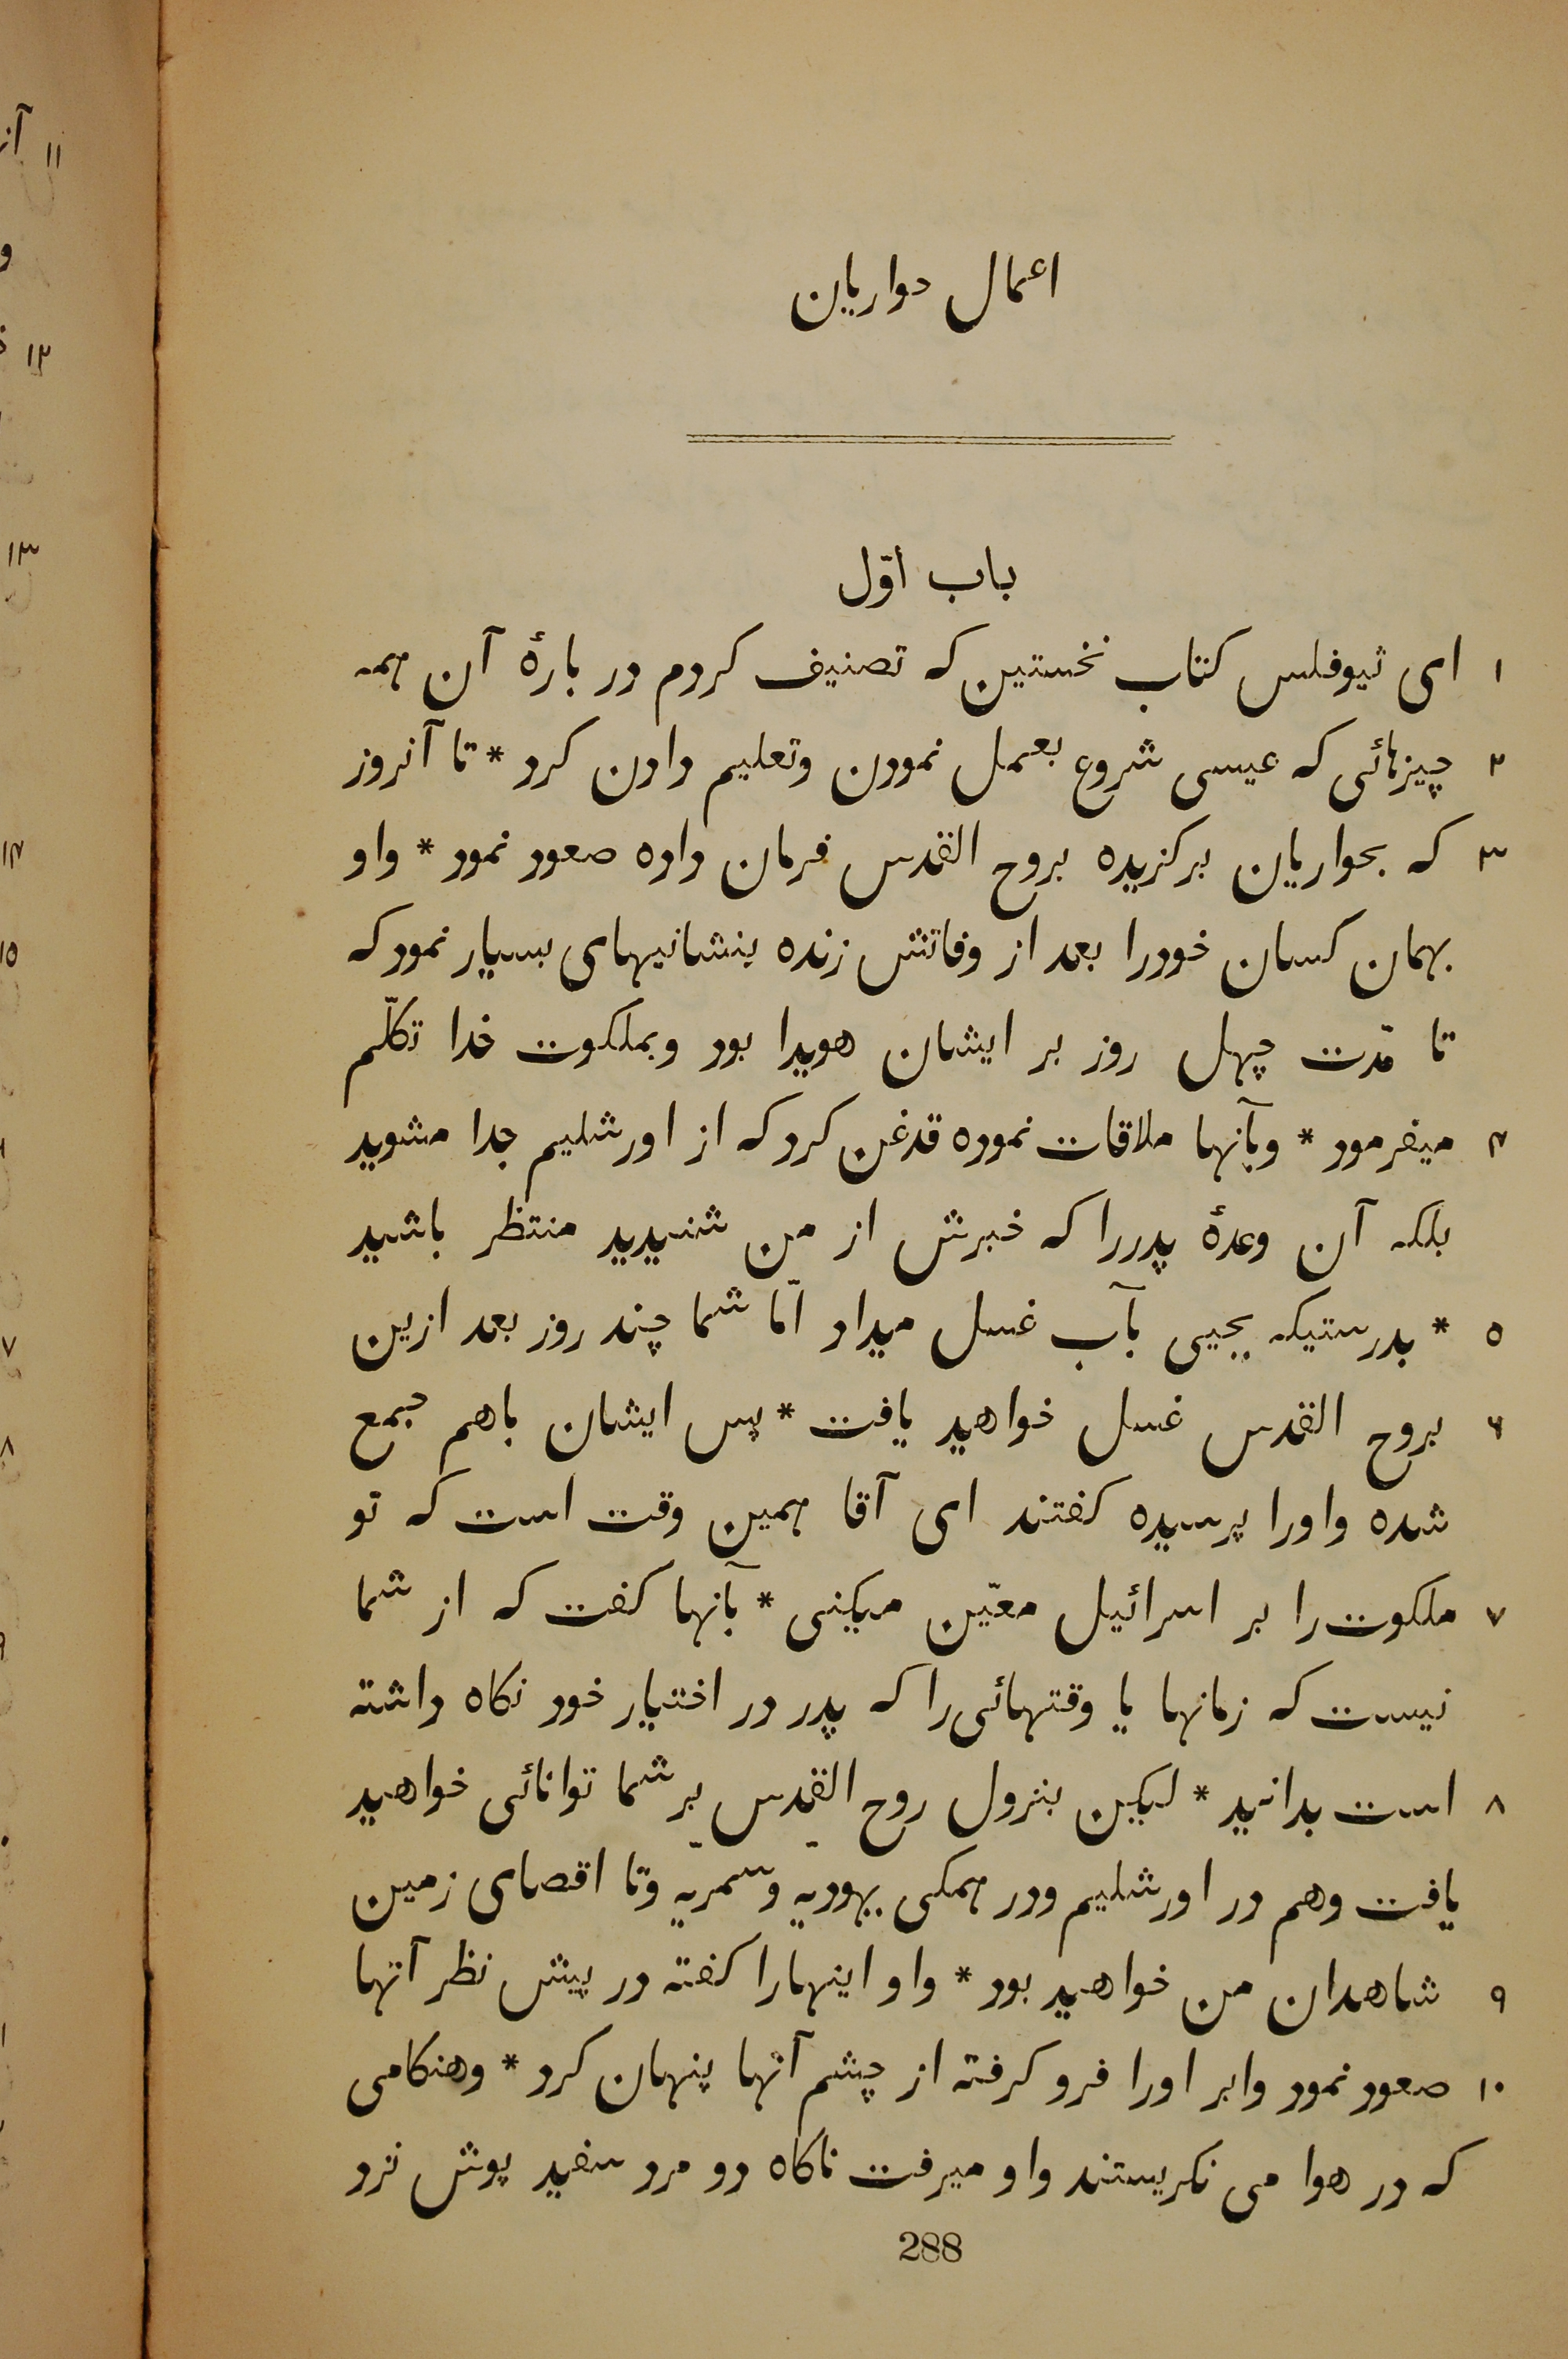 اعمال حواریان
باب اوّل
۱ ای ثیوفلس کتاب نخستین که تصنیف کردم در بارهٔ آن همه
۲ چیزهائی که عیسی شروع بعمل نمودن وتعلیم دادن کرد * تا آنروز
۳ که بحواریان برکزیده بروح القدس فرمان داده صعود نمود * واو
بهمان کسان خودرا بعد از وفاتش زنده بنشانیهای بسیار نمود که
تا مّدت چهل روز بر ایشان هویدا بود وبملکوت خدا تکلّم
۴ میفرمود * وبآنها ملاقات نموده قدغن کرد که از اورشلیم جدا مشوید
بلکه آن وعدهٔ پدررا که خبرش از من شنیدید منتظر باشید
۵ * بدرستیکه یحیی بآب غسل میداد امّا شما چند روز بعد ازین
۶ بروح القدس غسل خواهید یافت * پس ایشان باهم جمع
شده واورا پرسیده کفتند ای آقا همین وقت است که تو
۷ ملکوت را بر اسرائیل معیّن میکنی * بآنها کفت که از شما
نیست که زمانها یا وقتهائی را که پدر در اختیار خود نکاه داشته
۸ است بدانید * لیکین بنزول روح القدس بر شما توانائی خواهید
یافت وهم در اورشلیم ودر همکی یهودیّه وسمریّه وتا اقصای زمین
۹ شاهدان من خواهید بود * واو اینهارا کفته در پیش نظر آنها
۱۰ صعود نمود وابر اورا فرو کرفته از چشم آنها پنهان کرد * وهنکامی
که در هوا می نکریستند واو میرفت ناکاه دو مرد سفید پوش نزد
288
۱۱
۱۲
۱۳
۱۴
۱۵
۷
۸